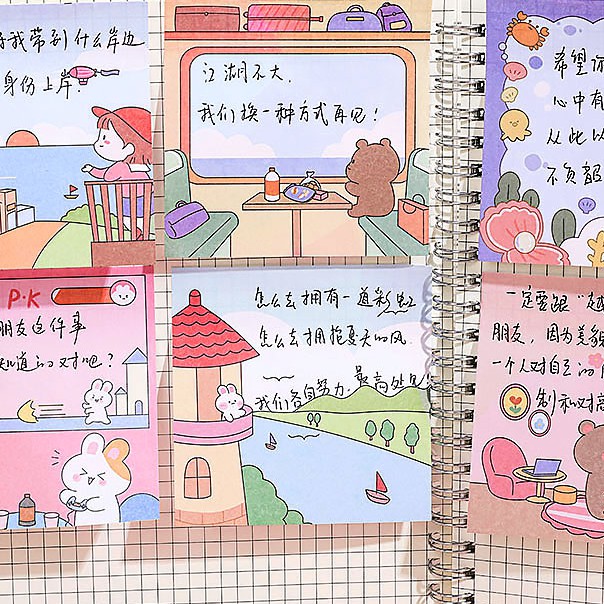 我带到什么岸边
身份上岸?
江湖不大,
我们换一种方式再见!
希望你
心中有
从此以
不负韶
P·K
朋友这件事
知道的对吧?
怎么去拥有一道彩虹
怎么去拥抱夏天的风
我们各自努力,最高处见
一定要跟“
朋友,因为美貌
一个人对自己的